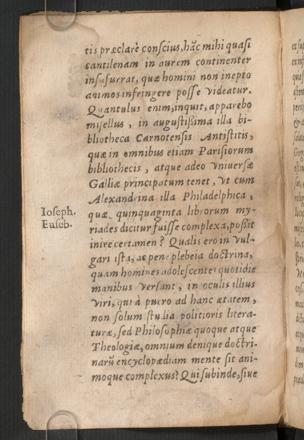 tis præclarè conscius, hãc mihi quasi
cantilenam in aurem continenter
insusurrat, quæ homini non inepto
animos infringere posse videatur.
Quantulus enim, inquit, apparebo
misellus, in augustißima illa bi-
bliotheca Carnotensis Antistitis,
quæ in omnibus etiam Parisiorum
bibliothecis, atque adeo vniuersæ
Galliæ principatum tenet, vt cum
Alexandrina illa Philadelphica,
Ioseph.
Euseb.
quæ quinquaginta librorum my-
riades dicitur fuisse complexa, poßit
inire certamen? Qualis ero in vul-
gari ista, ac pene plebeia doctrina,
quam homines adolescentes quotidie
manibus versant, in oculis illius
viri, qui à puero ad hanc ætatem,
non solum studia politioris litera-
turæ, sed Philosophiæ quoque atque
Theologiæ, omnium denique doctri-
narũ encyclopædiam mente sit ani-
moque complexus? Qui subinde, siue